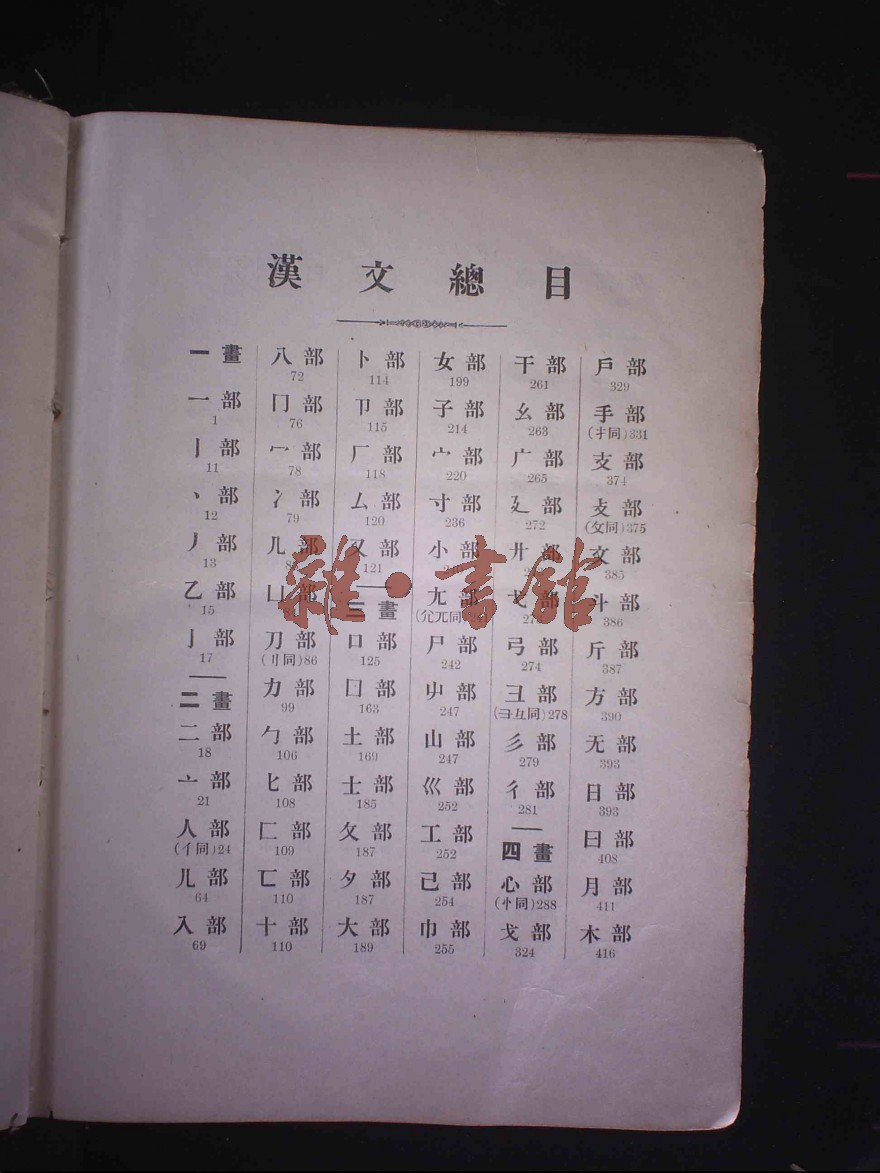 漢文總目
一畫
一部
1
丨部
11
丶部
12
丿部
13
乙部
15
亅部
17
二畫
二部
18
亠部
21
人部
(亻同)24
儿部
64
入部
69
八部
72
冂部
76
冖部
78
冫部
79
几部
凵部
刀部
(刂同)86
力部
99
勹部
106
匕部
108
匚部
109
匸部
110
十部
110
卜部
114
卩部
115
厂部
118
厶部
120
又部
121
三畫
口部
125
囗部
163
土部
169
士部
185
夂部
187
夕部
187
大部
189
女部
199
子部
214
宀部
220
寸部
236
小部
尢部
(尣兀同)
尸部
242
屮部
247
山部
247
巛部
252
工部
252
己部
254
巾部
255
干部
261
幺部
263
广部
265
廴部
272
廾部
弋部
弓部
274
彐部
(彑同)278
彡部
279
彳部
281
四畫
心部
(忄同)288
戈部
324
戶部
329
手部
(扌同)331
支部
374
攴部
(攵同)375
文部
385
斗部
386
斤部
387
方部
390
无部
393
日部
393
曰部
408
月部
411
木部
416
雜·書館